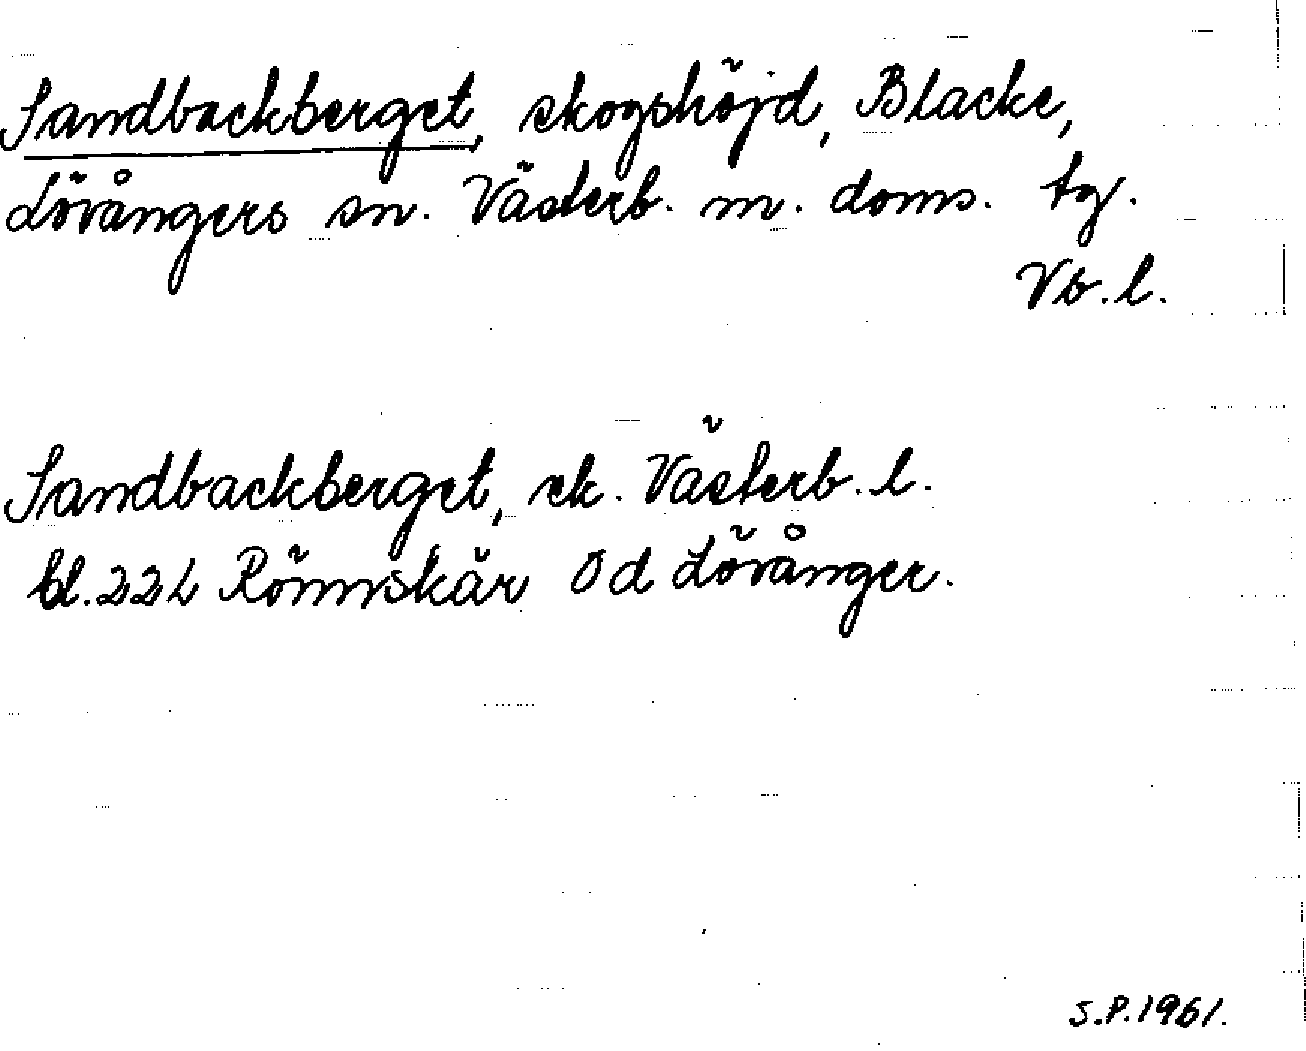 Sandbackberget, skogshöjd, Blacke,
Lövångers sn. Västerb. m. doms. tg.
Vb. l.
Sandbackberget, ek. Västerb. l.
bl. 22L Rönnskär Öd Lövånger.
S.P. 1961.